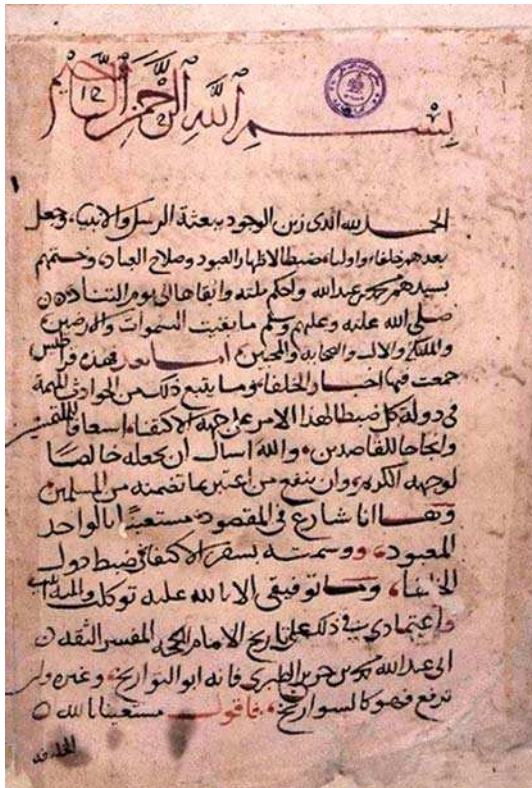 بسم الله الرحمن الرحيم
الحمد لله الذي زين الوجود ببعثة الرسل والانبياء وجعل
بعدهم خلفاء واولياء ضبطا لاظهار العبود وصلاح العباد وختمهم
بسيدهم محمد بن عبد الله واحكم ملته وابقاها الى يوم التناد
صلى الله عليه وعليهم وسلم ما بقيت السموات والارضين
والملئكة والآل والصحابة والمحبين اما بعد فهذه قراطيس
جمعت فيها اخبار الخلفاء وما يتبع ذلك من الحوادث المهمة
في دولة كل ضبطا لهذا الامر على جهة الاكتفاء اسعافا للملقين
وانجاحا للقاصدين والله اسال ان يجعله خالصا
لوجهه الكريم وان ينفع من اعتبر بما تضمنه من المسلمين
وها انا شارع في المقصود مستعينا بالواحد
المعبود ووسمته بسفر الاكتفا في ضبط دول
الخلفا وما توفيقي الا بالله عليه توكلت واليه انيب
واعتمادي في ذلك على تاريخ الامام الحجة المفسر الثقة
ابي عبد الله محمد بن جرير الطبري فانه ابو التواريخ وغيره وان
ترفع فهو كالسواريخ فاقول مستعينا بالله
الخلافة